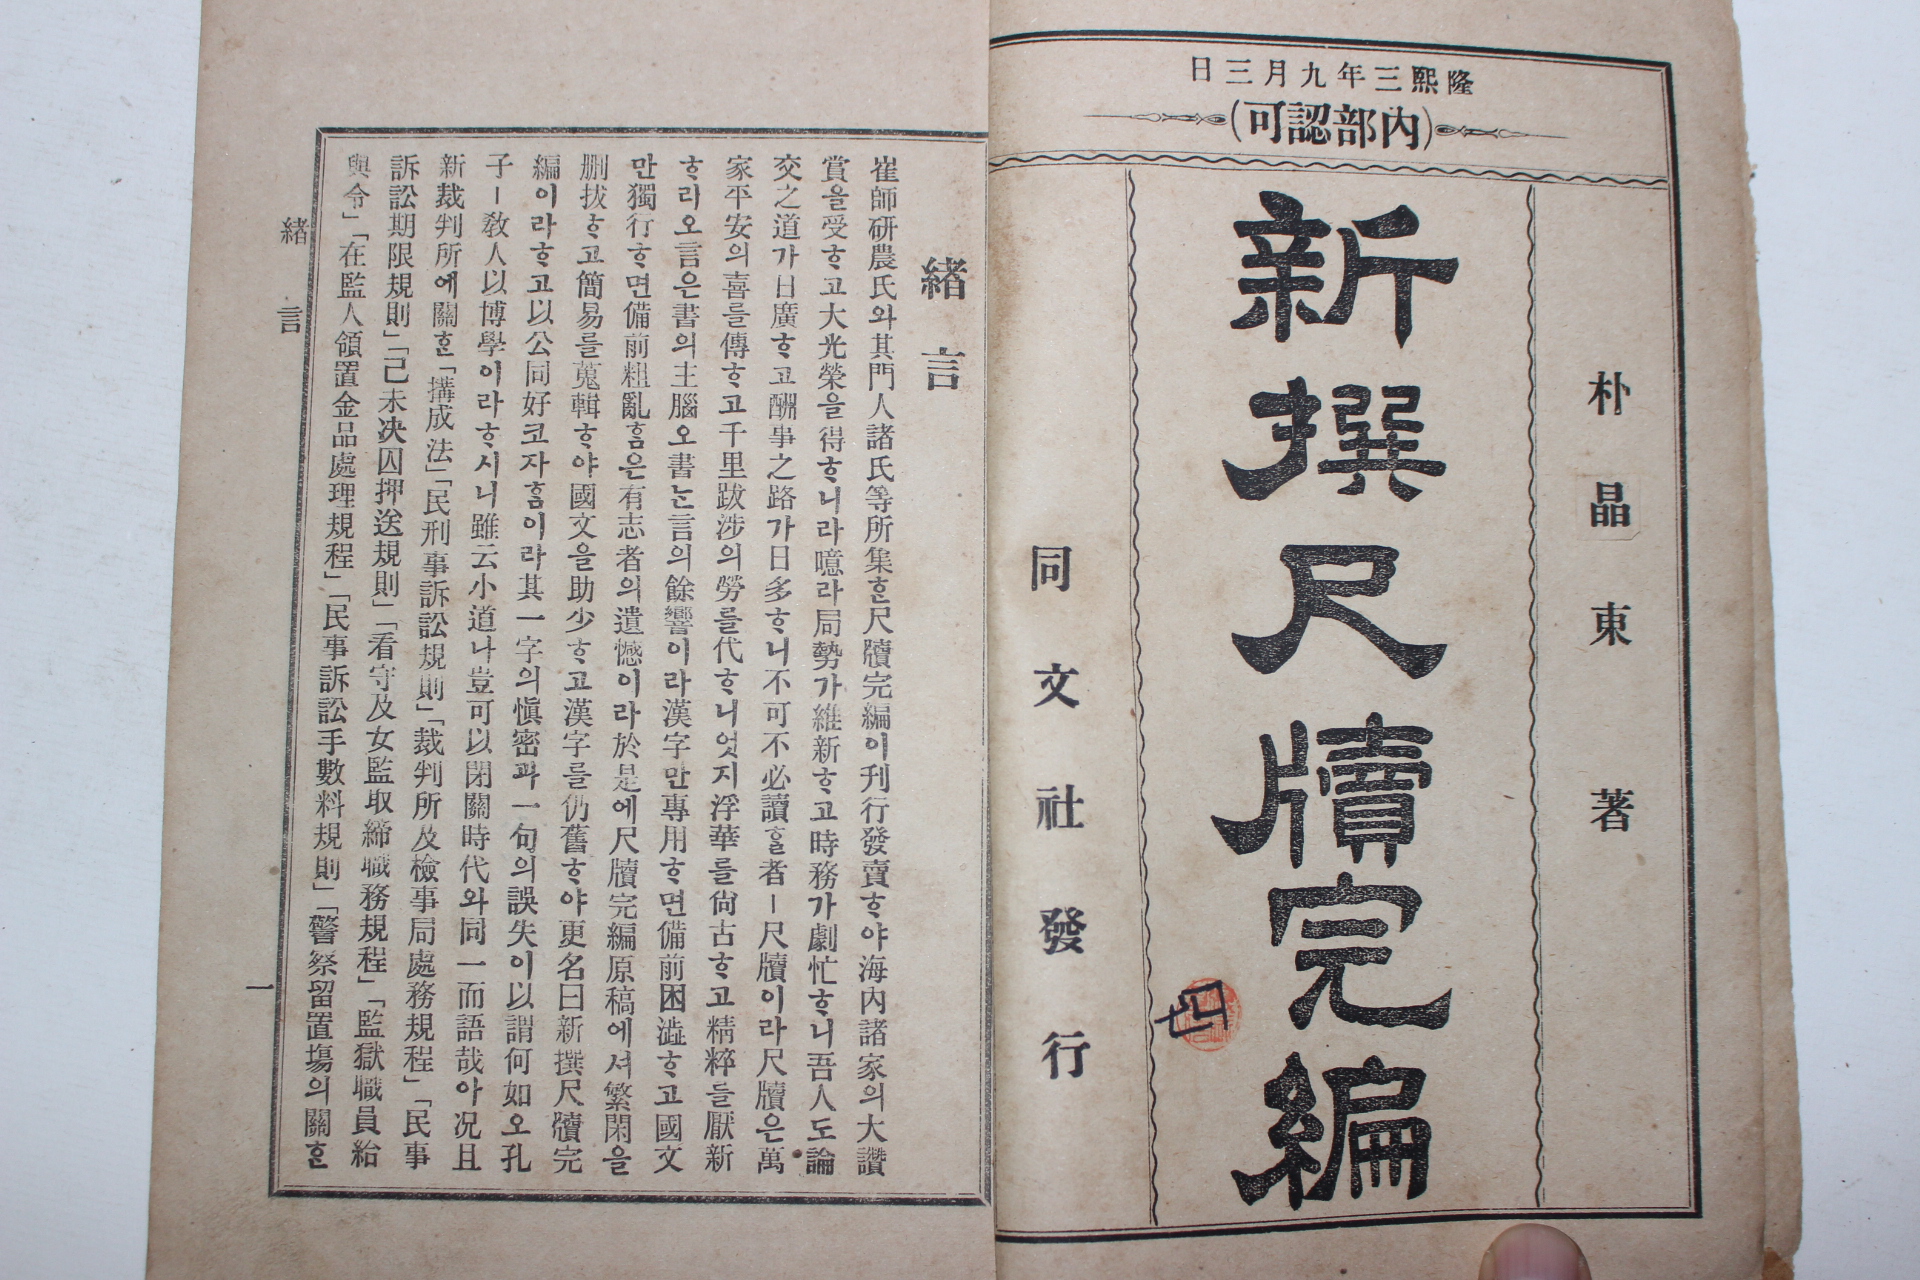 隆熙三年九月三日
(內部認可)
朴晶東 著
新撰尺牘完編
同文社發行
緖言
崔師硏農氏와其門人諸氏等所集ᄒᆞᆫ尺牘完編이刊行發賣ᄒᆞ야海內諸家의大讚
賞을受ᄒᆞ고大光榮을得ᄒᆞ니라噫라局勢가維新ᄒᆞ고時務가劇忙ᄒᆞ니吾人도論
交之道가日廣ᄒᆞ고酬事之路가日多ᄒᆞ니不可不必讀ᄒᆞᆯ者ㅣ尺牘이라尺牘은萬
家平安의喜를傳ᄒᆞ고千里跋涉의勞를代ᄒᆞ니엇지浮華를尙古ᄒᆞ고精粹를厭新
ᄒᆞ리오言은書의主腦오書ᄂᆞᆫ言의餘響이라漢字만專用ᄒᆞ면備前困澁ᄒᆞ고國文
만獨行ᄒᆞ면備前粗亂ᄒᆞᆷ은有志者의遺憾이라於是에尺牘完編原稿에셔繁閑을
删拔ᄒᆞ고簡易를蒐輯ᄒᆞ야國文을助少ᄒᆞ고漢字를仍舊ᄒᆞ야更名曰新撰尺牘完
編이라ᄒᆞ고以公同好코자ᄒᆞᆷ이라其一字의愼密과一句의誤失이以謂何如오孔
子ㅣ敎人以博學이라ᄒᆞ시니雖云小道나豈可以閉關時代와同一而語哉아况且
新裁判所에關ᄒᆞᆫ「搆成法」「民刑事訴訟規則」「裁判所及檢事局處務規程」「民事
訴訟期限規則」「己未決囚押送規則」「看守及女監取締職務規程」「監獄職員給
與令」「在監人領置金品處理規程」「民事訴訟手數料規則」「警察留置塲의關ᄒᆞᆫ
緖言
一